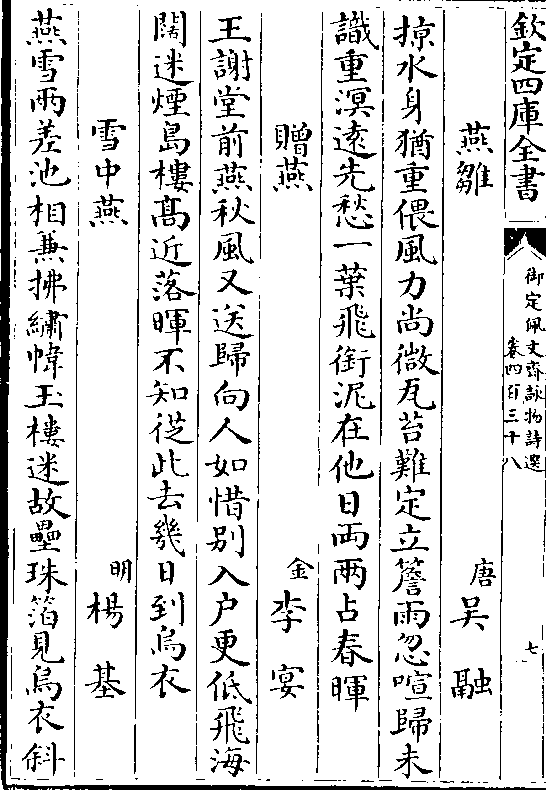 欽定四庫全書
御定佩文齋詠物詩選
卷四百三十八
七
燕雛
唐
吳融
掠水身猶重偎風力尚微瓦苔難定立簷雨忽喧歸未
識重溟遠先愁一葉飛銜泥在他日両兩占春暉
贈燕
金
李宴
王謝堂前燕秋風又送歸向人如惜别入户更低飛海
闊迷煙島樓髙近落暉不知從此去幾日到烏衣
雪中燕
明
楊基
燕雪兩差池相兼拂繡幃玉樓迷故壘珠箔見烏衣斜